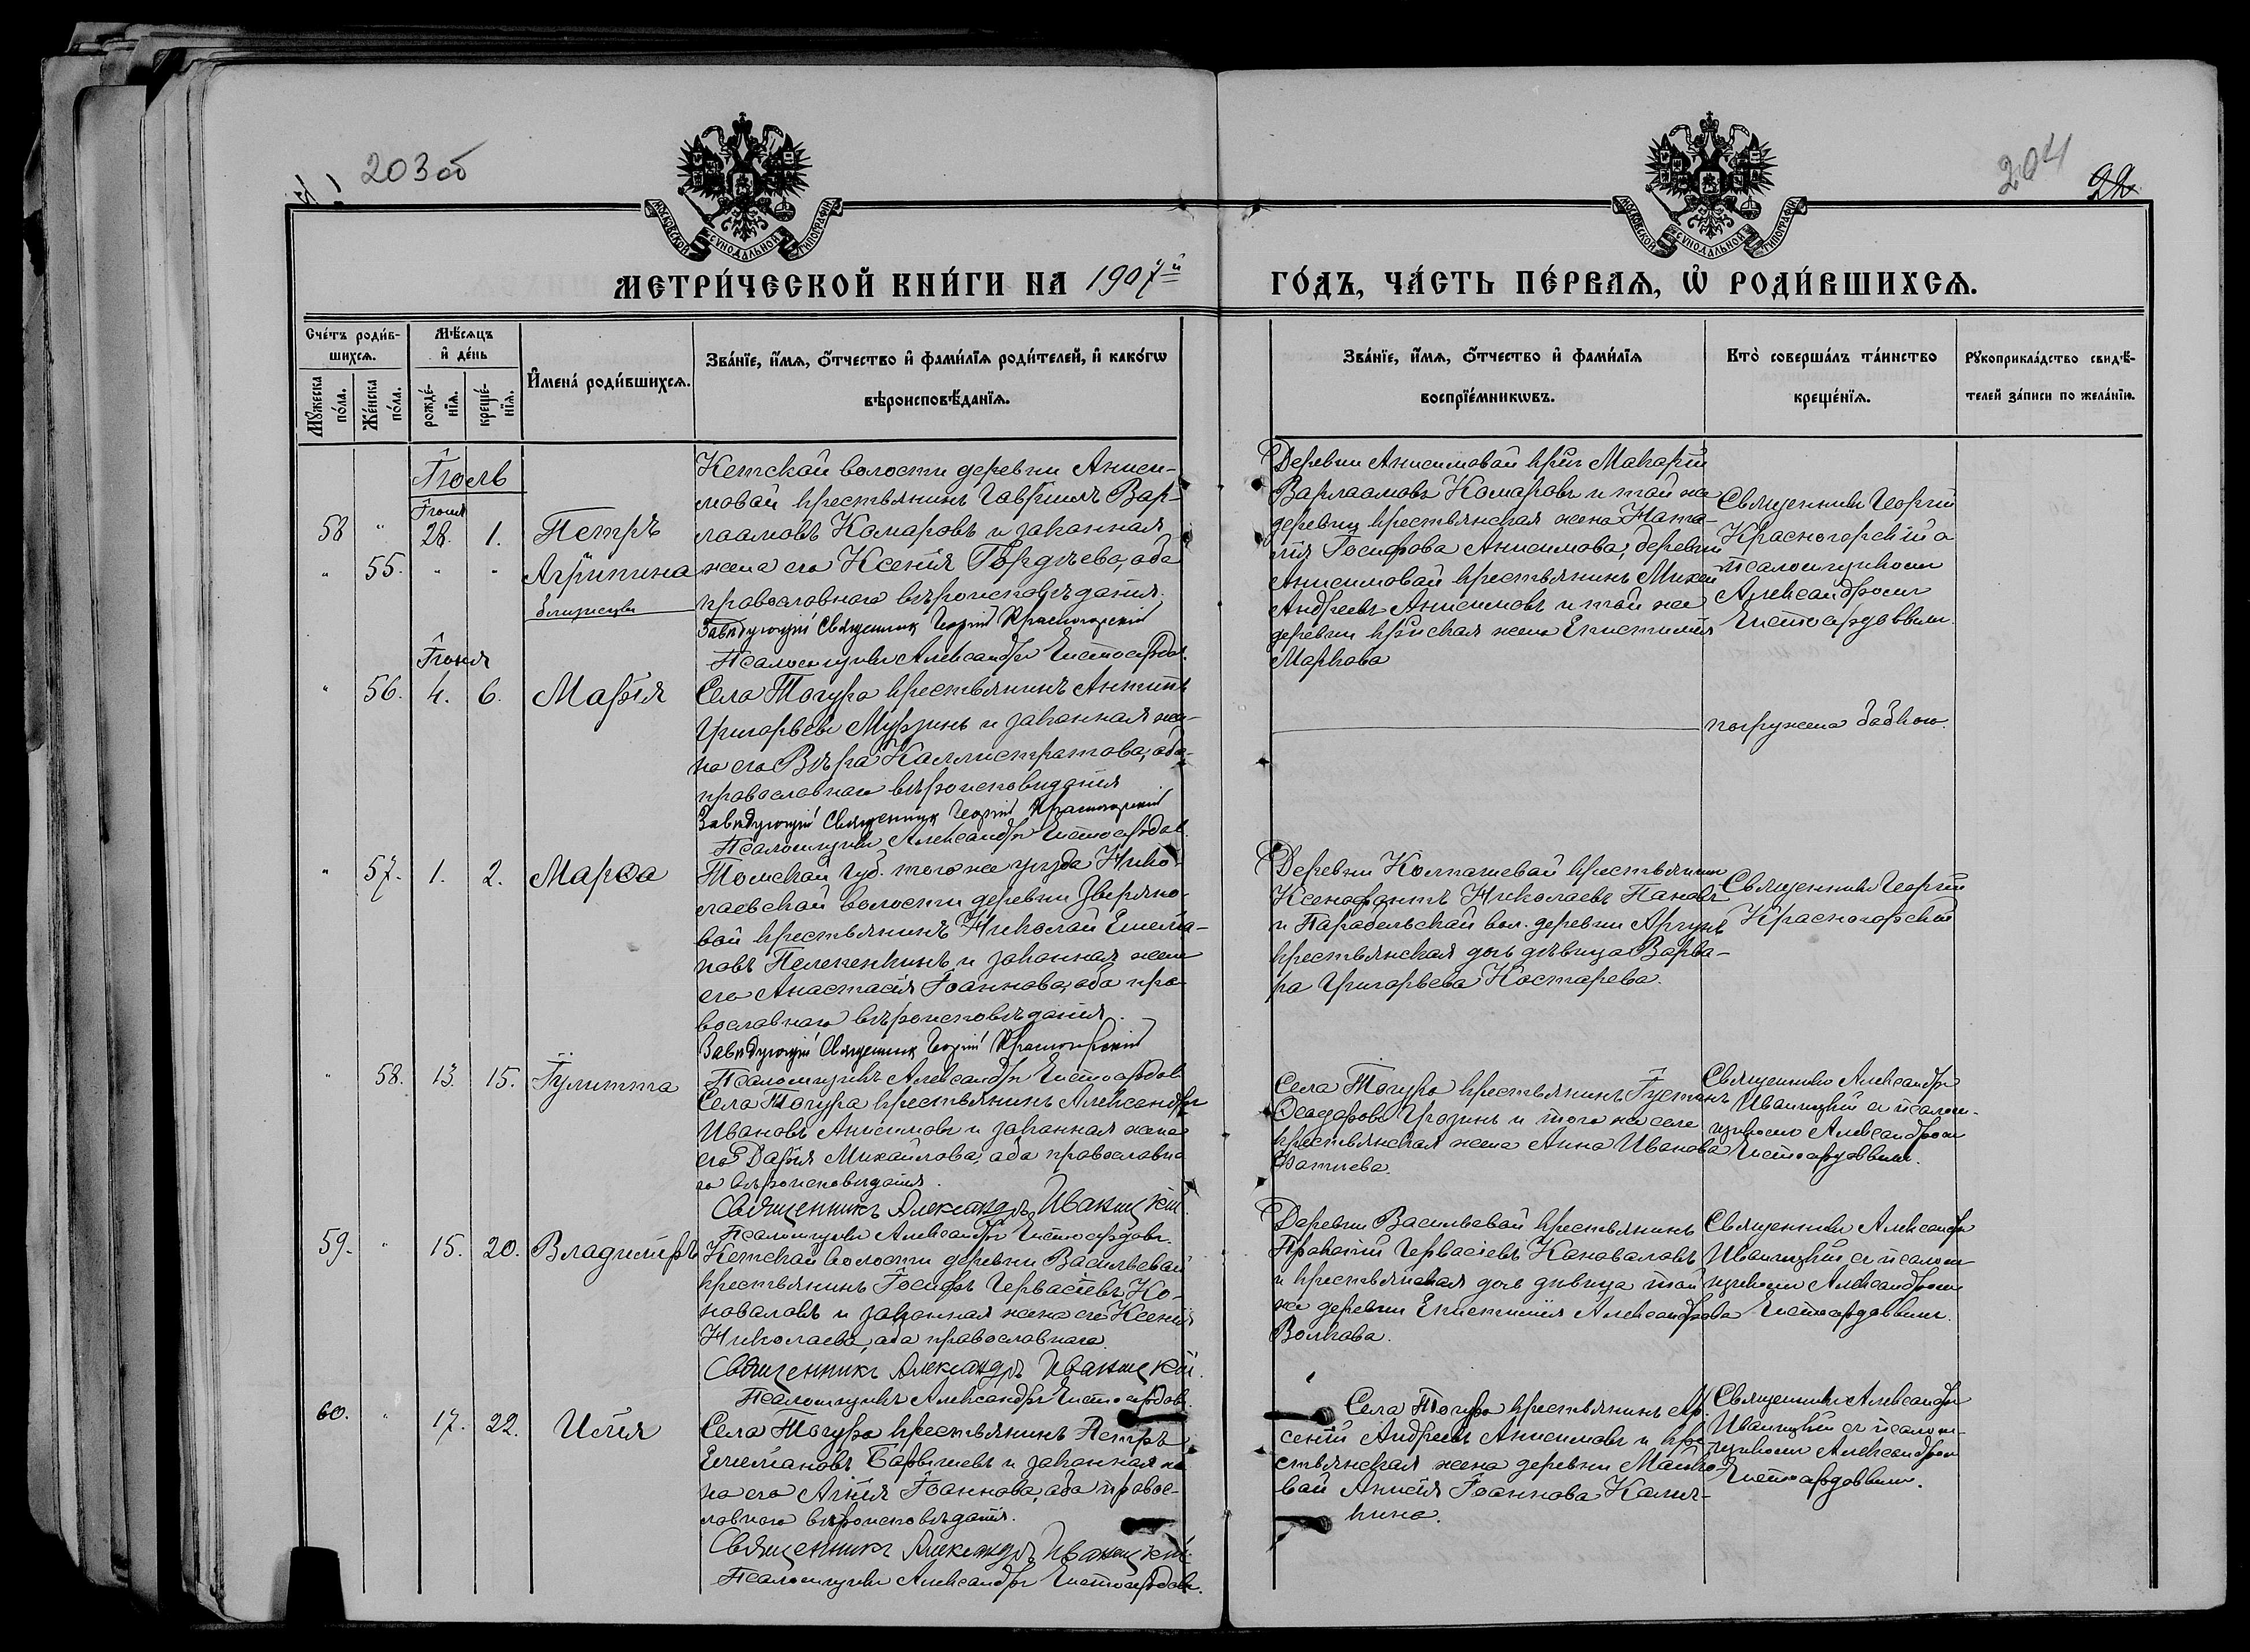 203 об
204
22
МОСКОВСКОЙ СѴНОДАЛЬНОЙ ТИПОГРАФІИ
МОСКОВСКОЙ СѴНОДАЛЬНОЙ ТИПОГРАФІИ
МЕТРИ́ЧЕСКОЙ КНИ́ГИ НА 1907й
ГО́ДЪ, ЧА́СТЬ ПЕ́РВАѦ, Ѡ҆ РОДИ́ВШИХСѦ.
Сче́тъ роди́в-
шихсѧ.
Мꙋ́жеска по́ла.
Же́нска по́ла.
Мѣ́сѧцъ
и҆ де́нь
рожде́-
нїѧ.
креще́-
нїѧ.
И҆мена̀ роди́вшихсѧ.
Зва́нїе, и҆́мѧ, ѻ҆́тчество и҆ фами́лїѧ роди́телей, и҆ како́гѡ
вѣроисповѣ́данїѧ.
Зва́нїе, и҆́мѧ, ѻ҆́тчество и҆ фами́лїѧ
воспрїе́мникѡвъ.
Кто̀ соверша́лъ та́инство
креще́нїѧ.
Рꙋкоприкла́дство свидѣ́-
телей за́писи по жела́нїю.
Іюль
Іюня
58 " 28. 1. Петръ
" 55. " " Агрипина
близнецы
Кетской волости деревни Аниси-
мовой крестьянинъ Гавріилъ Вар-
лаамовъ Комаровъ и законная
жена его Ксенія Гордѣева, оба
православнаго вѣроисповѣданія.
Завѣдующій Священникъ Георгій Красногорскій
Псаломщикъ Александръ Чистосердовъ.
Деревни Анисимовой кр-нъ Макарій
Варлаамовъ Комаровъ и той же
деревни крестьянская жена Ната-
лія Іосифова Анисимова; деревни
Анисимовой крестьянинъ Михей
Андреевъ Анисимовъ и той же
деревни кр-нская жена Епистимія
Маркова
Священникъ Георгій
Красногорскій с
псаломщикомъ
Александромъ
Чистосердовымъ.
Іюня
" 56. 4. 6. Марія
Села Тогура крестьянинъ Антипъ
Григорьевъ Мурзинъ и законная же-
на его Вѣра Каллистратова, оба
православнаго вѣроисповѣданія
Завѣдующій Священникъ Георгій Красногорскій
Псаломщикъ Александръ Чистосердовъ.
погружена бабкою.
" 57. 1. 2. Марѳа
Томской губ. того же уѣзда Нико-
лаевской волости деревни Звѣряко-
вой крестьянинъ Николай Емелья-
новъ Пелекенкинъ и законная жена
его Анастасія Іоаннова, оба пра-
вославнаго вѣроисповѣданія.
Завѣдующій Священникъ Георгій Красногорскій
Псаломщикъ Александръ Чистосердовъ
Деревни Колпашевой крестьянинъ
Ксенофонтъ Николаевъ Пановъ
и Парабельской вол. деревни Аргунъ
крестьянская дочь дѣвица Варва-
ра Григорьева Костарева.
Священникъ Георгій
Красногорскій
" 58. 13. 15. Іулитта
Села Тогура крестьянинъ Александръ
Ивановъ Анисимовъ и законная жена
его Дарья Михайлова, оба православна-
го вѣроисповѣданія.
Священникъ Александръ Иваницкій.
Псаломщикъ Александръ Чистосердовъ.
Села Тогура крестьянинъ Іустинъ
Ѳеодоровъ и того же села
крестьянская жена Анна Иванова
Фатѣева.
Священникъ Александръ
Иваницкій съ псалом-
щикомъ Александромъ
Чистосердовымъ.
59. " 15. 20. Владиміръ
Кетской волости деревни Васильевой
крестьянинъ Іосифъ Гервасіевъ Ко-
новаловъ и законная жена его Ксенія
Николаева, оба православнаго.
Священникъ Александръ Иваницкій.
Псаломщикъ Александръ Чистосердовъ.
Деревни Васильевой крестьянинъ
Прокопій Гервасіевъ Коноваловъ
и крестьянская дочь дѣвица той
же деревни Епистимія Александрова
Волкова.
Священникъ Александръ
Иваницкій съ псалом-
щикомъ Александромъ
Чистосердовымъ.
60. " 17. 22. Илія
Села Тогура крестьянинъ Петръ
Емеліановъ Барышевъ и законная же-
на его Агнія Іоаннова, оба правос-
лавнаго вѣроисповѣданія.
Священникъ Александръ Иваницкій.
Псаломщикъ Александръ Чистосердовъ.
Села Тогура крестьянинъ Ар-
сеній Андреевъ Анисимовъ и кре-
стьянская жена деревни Майко-
вой Анисія Іоаннова Каля-
кина.
Священникъ Александръ
Иваницкій съ псалом-
щикомъ Александромъ
Чистосердовымъ.